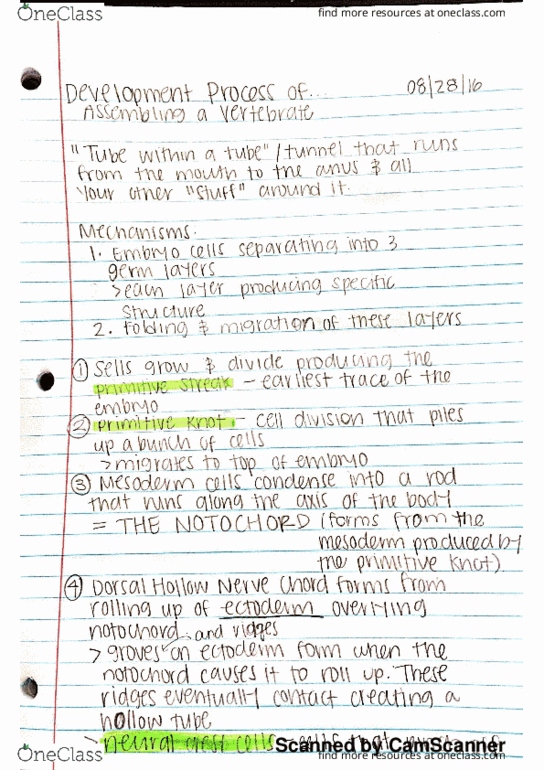 OneClass
find more resources at oneclass.com
Development Process of...
08/28/16
Assembling a vertebrate
"Tube within a tube" / tunnel that runs
from the mouth to the anus & all
your other "stuff" around it.
Mechanisms.
1. Embryo cells separating into 3
germ layers
>each layer producing specific
structure
2. folding & migration of these layers
① Sells grow & divide producing the
primitive streak - earliest trace of the
embryo
② primitive knot - cell division that piles
up a bunch of cells
>migrates to top of embryo
③ Mesoderm cells condense into a rod
that runs along the axis of the body
= THE NOTOCHORD (forms from the
mesoderm produced by
the primitive knot).
④ Dorsal Hollow Nerve Chord forms from
rolling up of ectoderm overlying
notochord, and ridges
> groves on ectoderm form when the
notochord causes it to roll up. These
ridges eventually contact creating a
hollow tube
neural crest cells
Scanned by CamScanner
OneClass
find more resources at oneclass.com